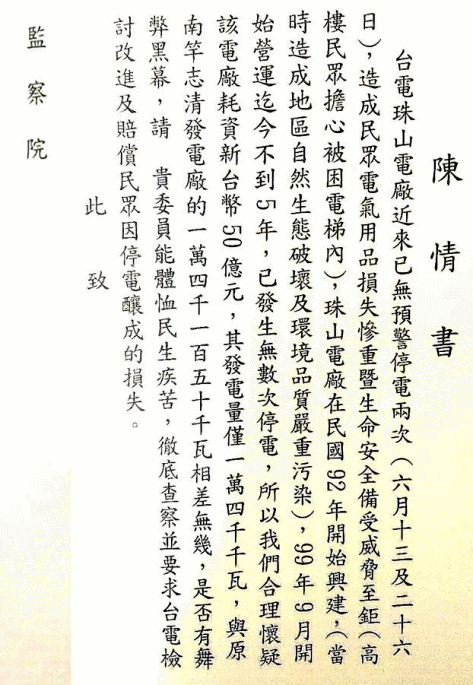 陳情書
台電珠山電廠近來已無預警停電兩次（六月十三及二十六
日），造成民眾電氣用品損失慘重暨生命安全備受威脅至鉅（高
樓民眾擔心被困電梯內），珠山電廠在民國92年開始興建，（當
時造成地區自然生態破壞及環境品質嚴重污染），99年9月開
始營運迄今不到5年，已發生無數次停電，所以我們合理懷疑
該電廠耗資新台幣50億元，其發電量僅一萬四千千瓦，與原
南竿志清發電廠的一萬四千一百五十千瓦相差無幾，是否有舞
弊黑幕，請　貴委員能體恤民生疾苦，徹底查察並要求台電檢
討改進及賠償民眾因停電釀成的損失。
此致
監察院